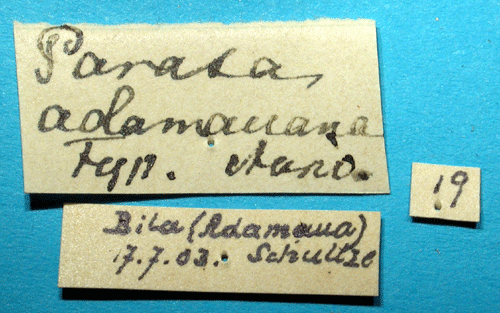 Parasa
adamauana
Typ. Strd.
19
Bila (Adamaua)
17.7.03. Schultze